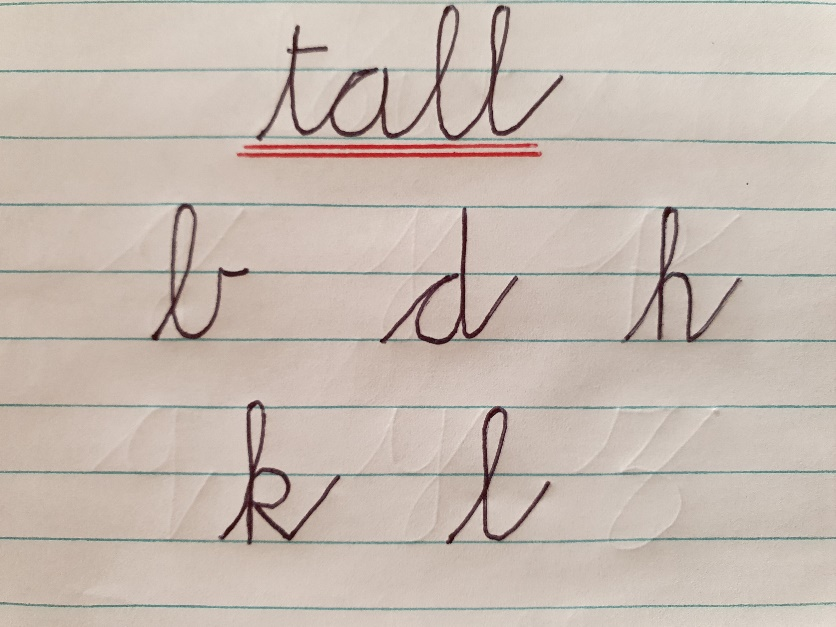 tall
b d h
k l